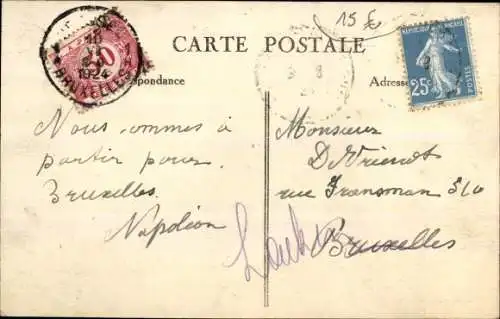 15
CARTE POSTALE
REPUBLIQUE FRANÇAISE
25c
POSTES
1924
BRUXELLES
pondance
Adresse
Nous sommes à
partir pour
Bruxelles.
Napoléon
Monsieur
De Vriendt
rue Fransman 510
Bruxelles
Laeken